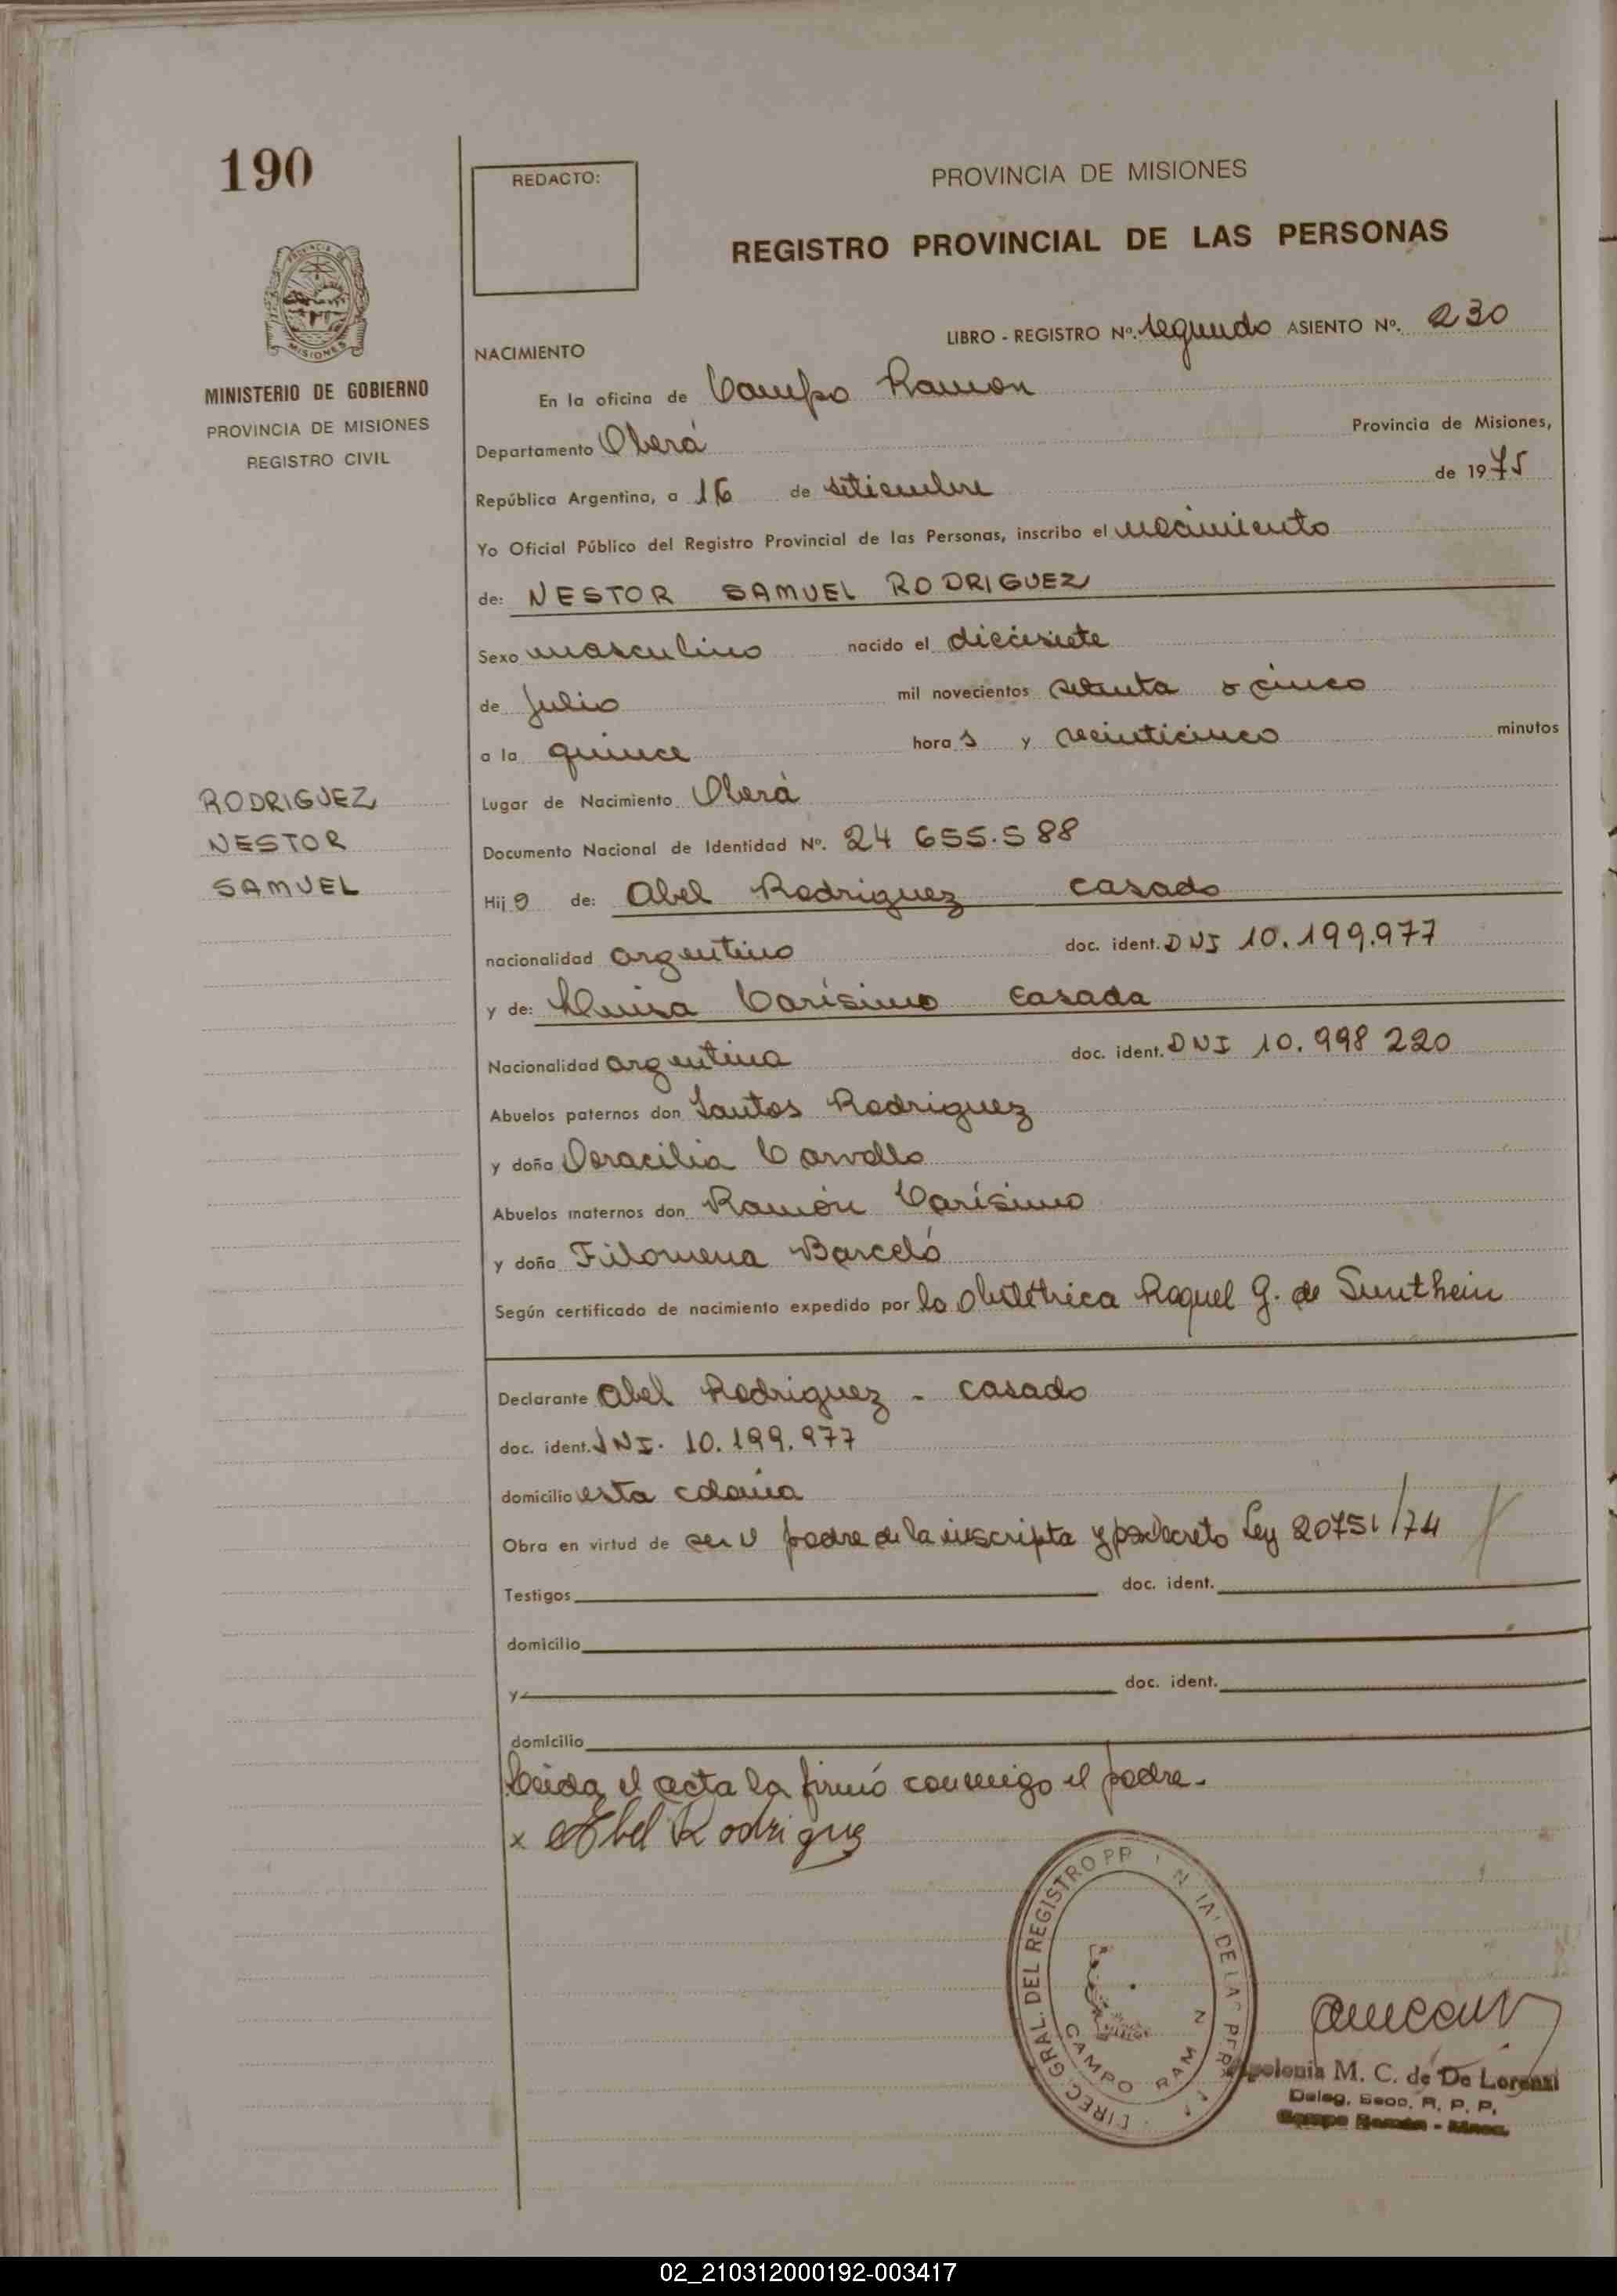 190
REDACTO:
PROVINCIA DE MISIONES
REGISTRO PROVINCIAL DE LAS PERSONAS
MISIONES
MINISTERIO DE GOBIERNO
PROVINCIA DE MISIONES
REGISTRO CIVIL
LIBRO - REGISTRO Nº. segundo ASIENTO Nº. 230
NACIMIENTO
En la oficina de Campo Ramon
Departamento Oberá Provincia de Misiones,
República Argentina, a 16 de setiembre de 1975
Yo Oficial Público del Registro Provincial de las Personas, inscribo el nacimiento
de: NESTOR SAMUEL RODRIGUEZ
Sexo masculino nacido el diecisiete
de Julio mil novecientos setenta y cinco
a la quince hora s y veinticinco minutos
RODRIGUEZ
NESTOR
SAMUEL
Lugar de Nacimiento Oberá
Documento Nacional de Identidad Nº. 24 655.588
Hij o de: Abel Rodriguez casado
nacionalidad argentino doc. ident. DNI 10.199.977
y de: Luisa Carísimo casada
Nacionalidad argentina doc. ident. DNI 10.998 220
Abuelos paternos don Santos Rodriguez
y doña Doracilia Carvallo
Abuelos maternos don Ramón Carísimo
y doña Filomena Barceló
Según certificado de nacimiento expedido por la obstétrica Raquel G. de Sunthein
Declarante Abel Rodriguez - casado
doc. ident. DNI. 10.199.977
domicilio esta colonia
Obra en virtud de ser el padre de la inscripta y por decreto Ley 20751/74
Testigos doc. ident.
domicilio
y doc. ident.
domicilio
Leida el acta la firmó conmigo el padre.
x Abel Rodriguez
DIREC. GRAL. DEL REGISTRO
CAMPO
Apolonia M. C. de De Lorenzi
Deleg. Secc. R. P. P.
Campo Ramón - Mnes.
02_210312000192-003417